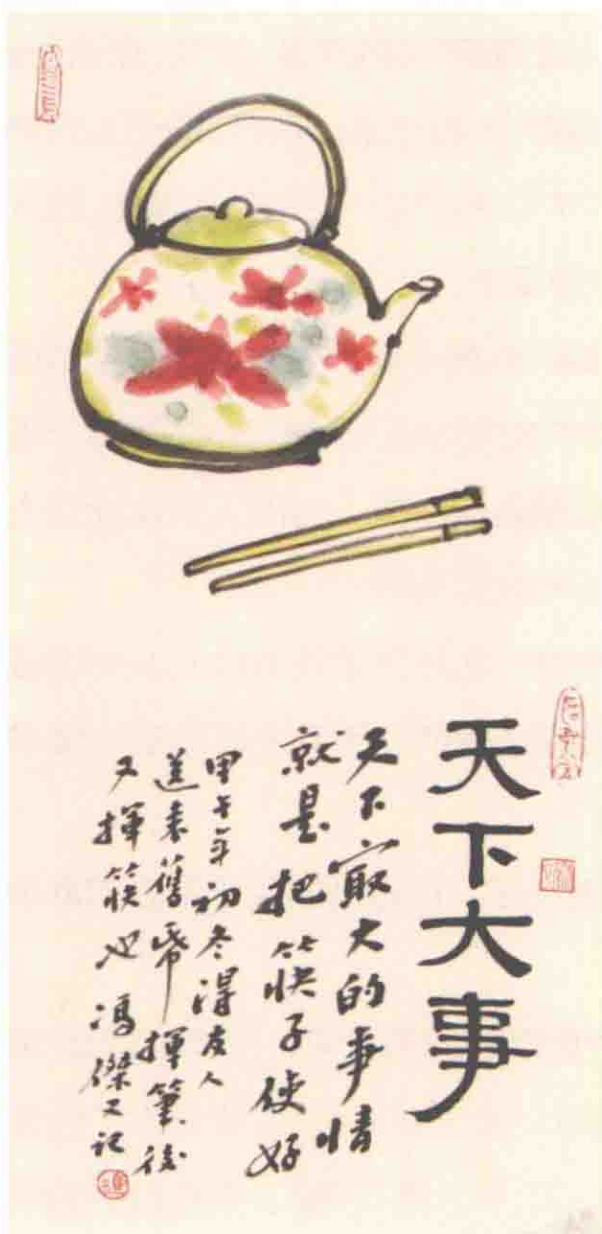 天下大事
天下㝡大的事情
就是把筷子使好
甲午年初冬得友人
送来舊帋揮筆後
又揮筷也 馮傑又記